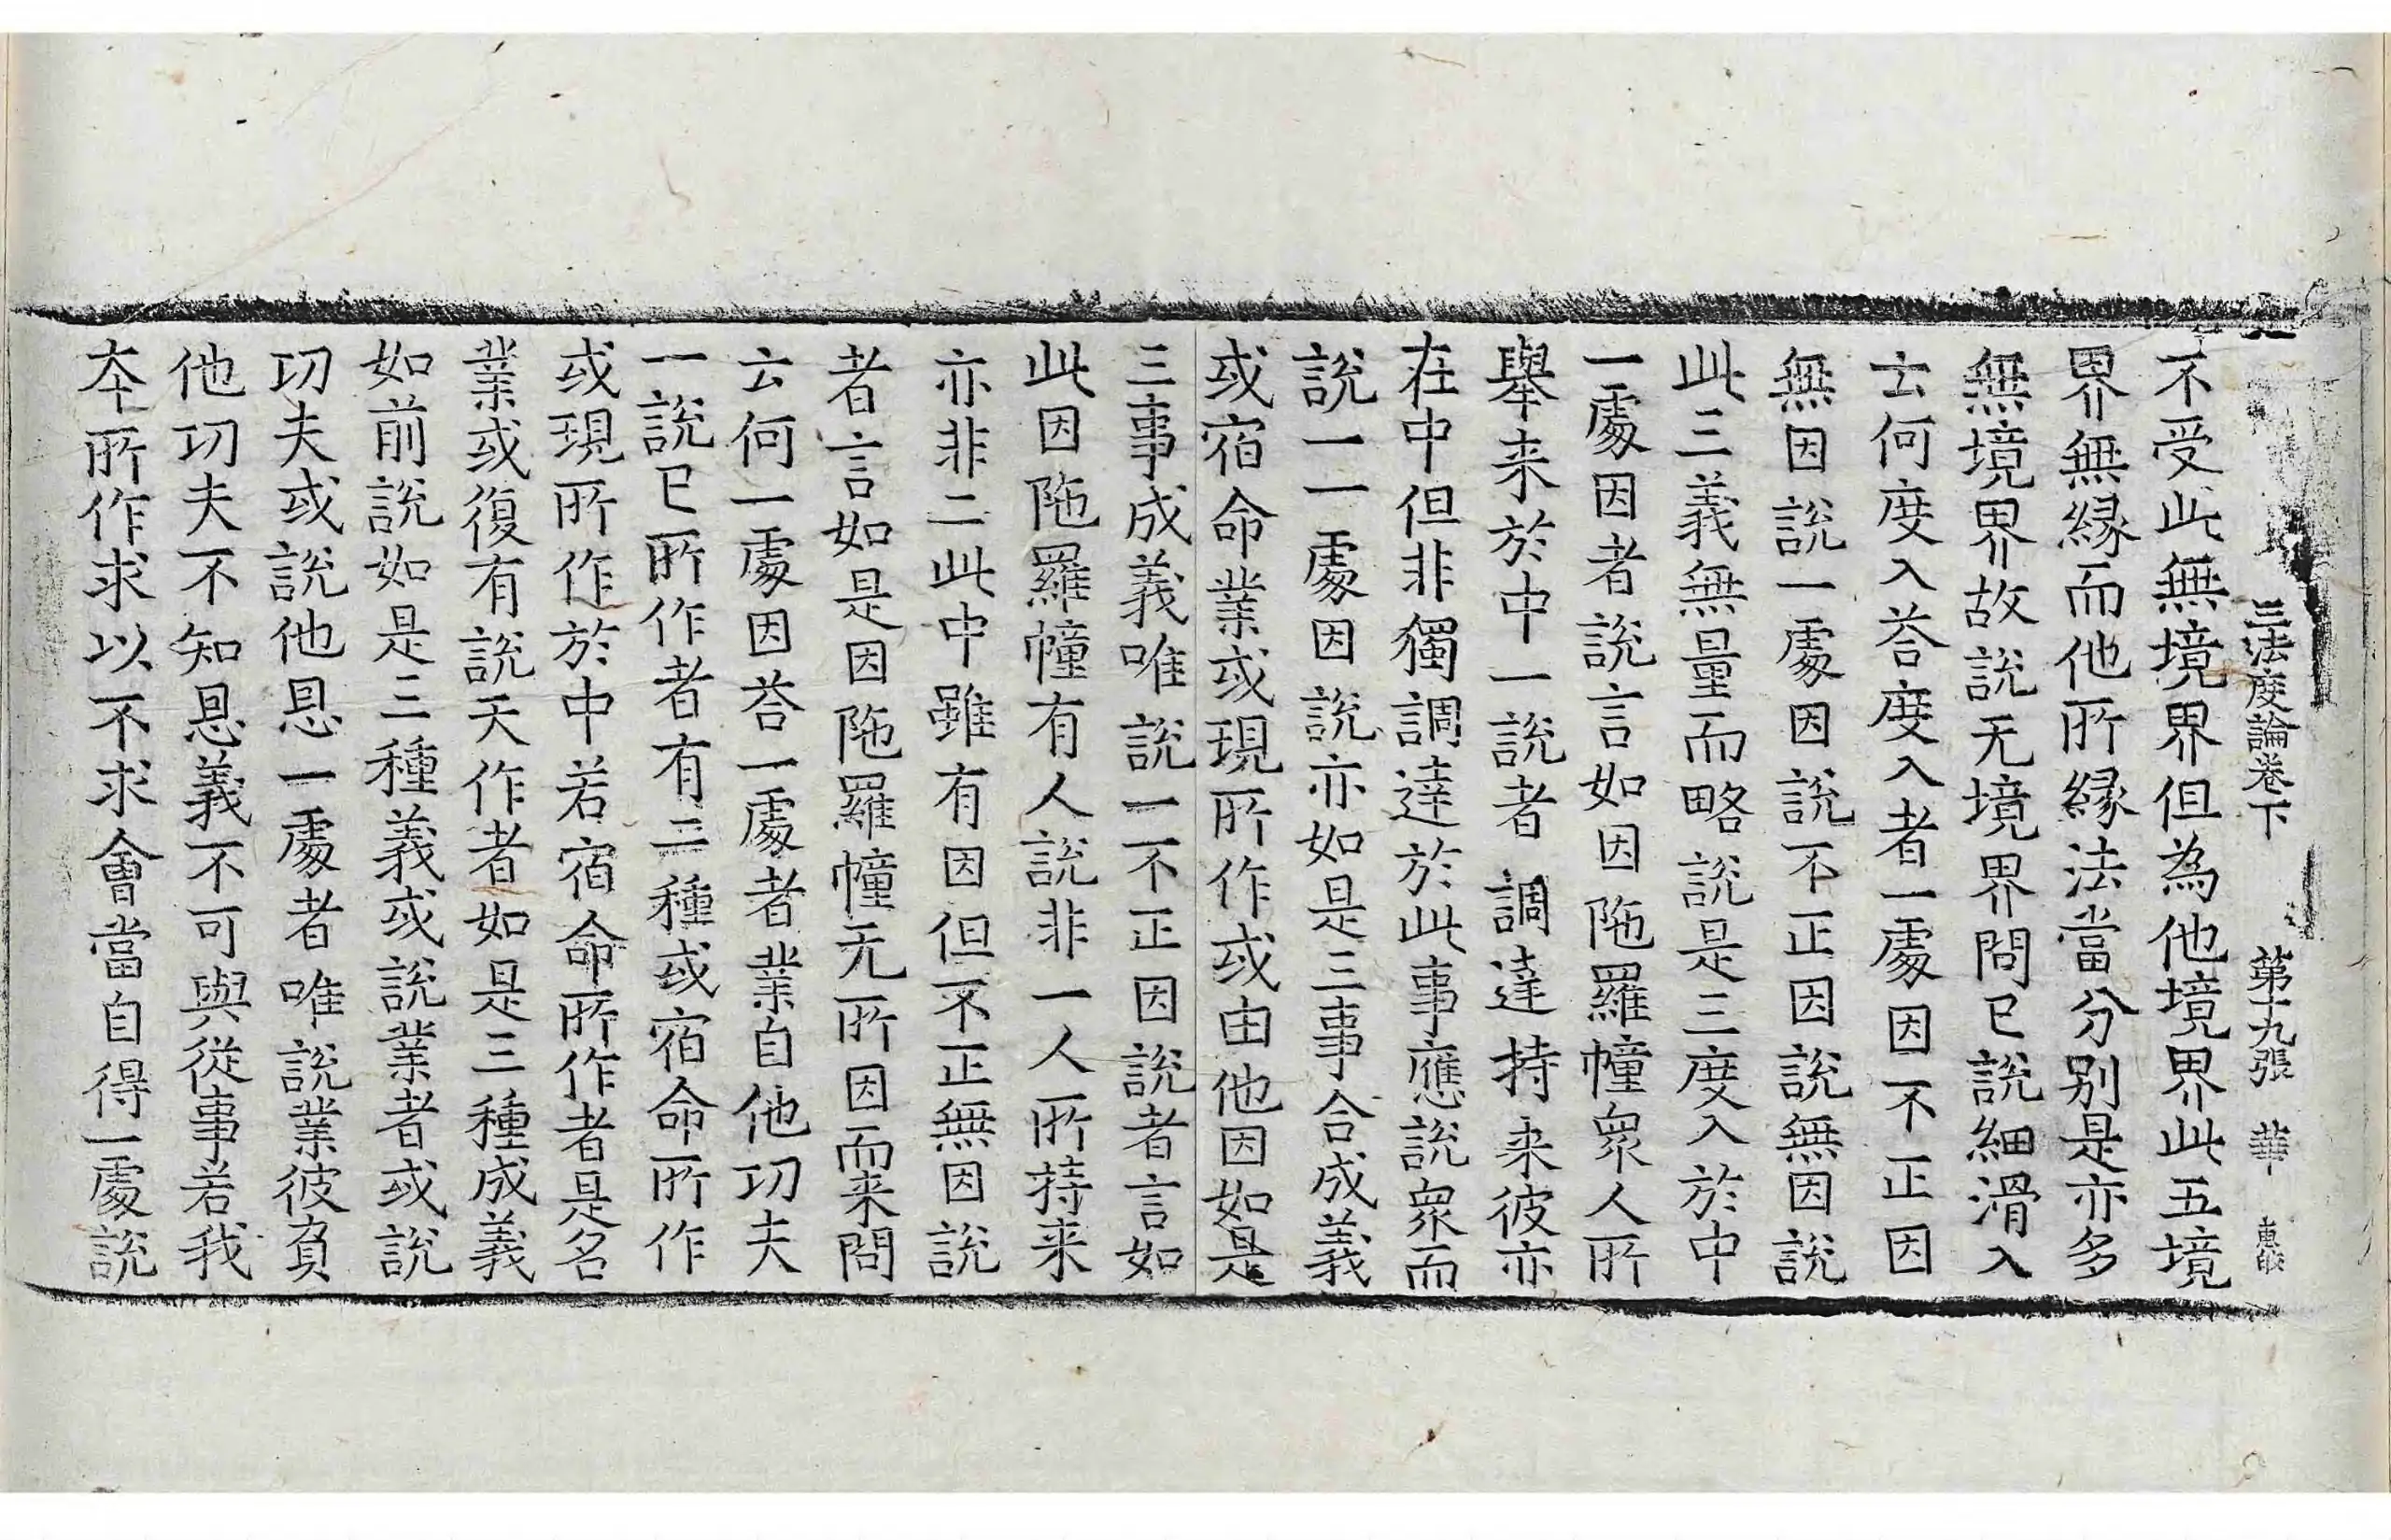 三法度論卷下 第十九張 華
不受此無境界但為他境界此五境
界無縁而他所縁法當分別是亦多
無境界故說无境界問已說細滑入
云何度入荅度入者一處因不正因
無因說一處因說不正因說無因說
此三義無量而略說是三度入於中
一處因者說言如因陁羅幢衆人所
舉来於中一說者調達持来彼亦
在中但非獨調達於此事應說衆而
說一一處因說亦如是三事合成義
或宿命業或現所作或由他因如是
三事成義唯說一不正因說者言如
此因陁羅幢有人說非一人所持来
亦非二此中雖有因但不正無因說
者言如是因陁羅幢无所因而来問
云何一處因荅一處者業自他功夫
一說已所作者有三種或宿命所作
或現所作於中若宿命所作者是名
業或復有說天作者如是三種成義
如前說如是三種義或說業者或說
功夫或說他恩一處者唯說業彼負
他功夫不知恩義不可與從事若我
夲所作求以不求會當自得一處說